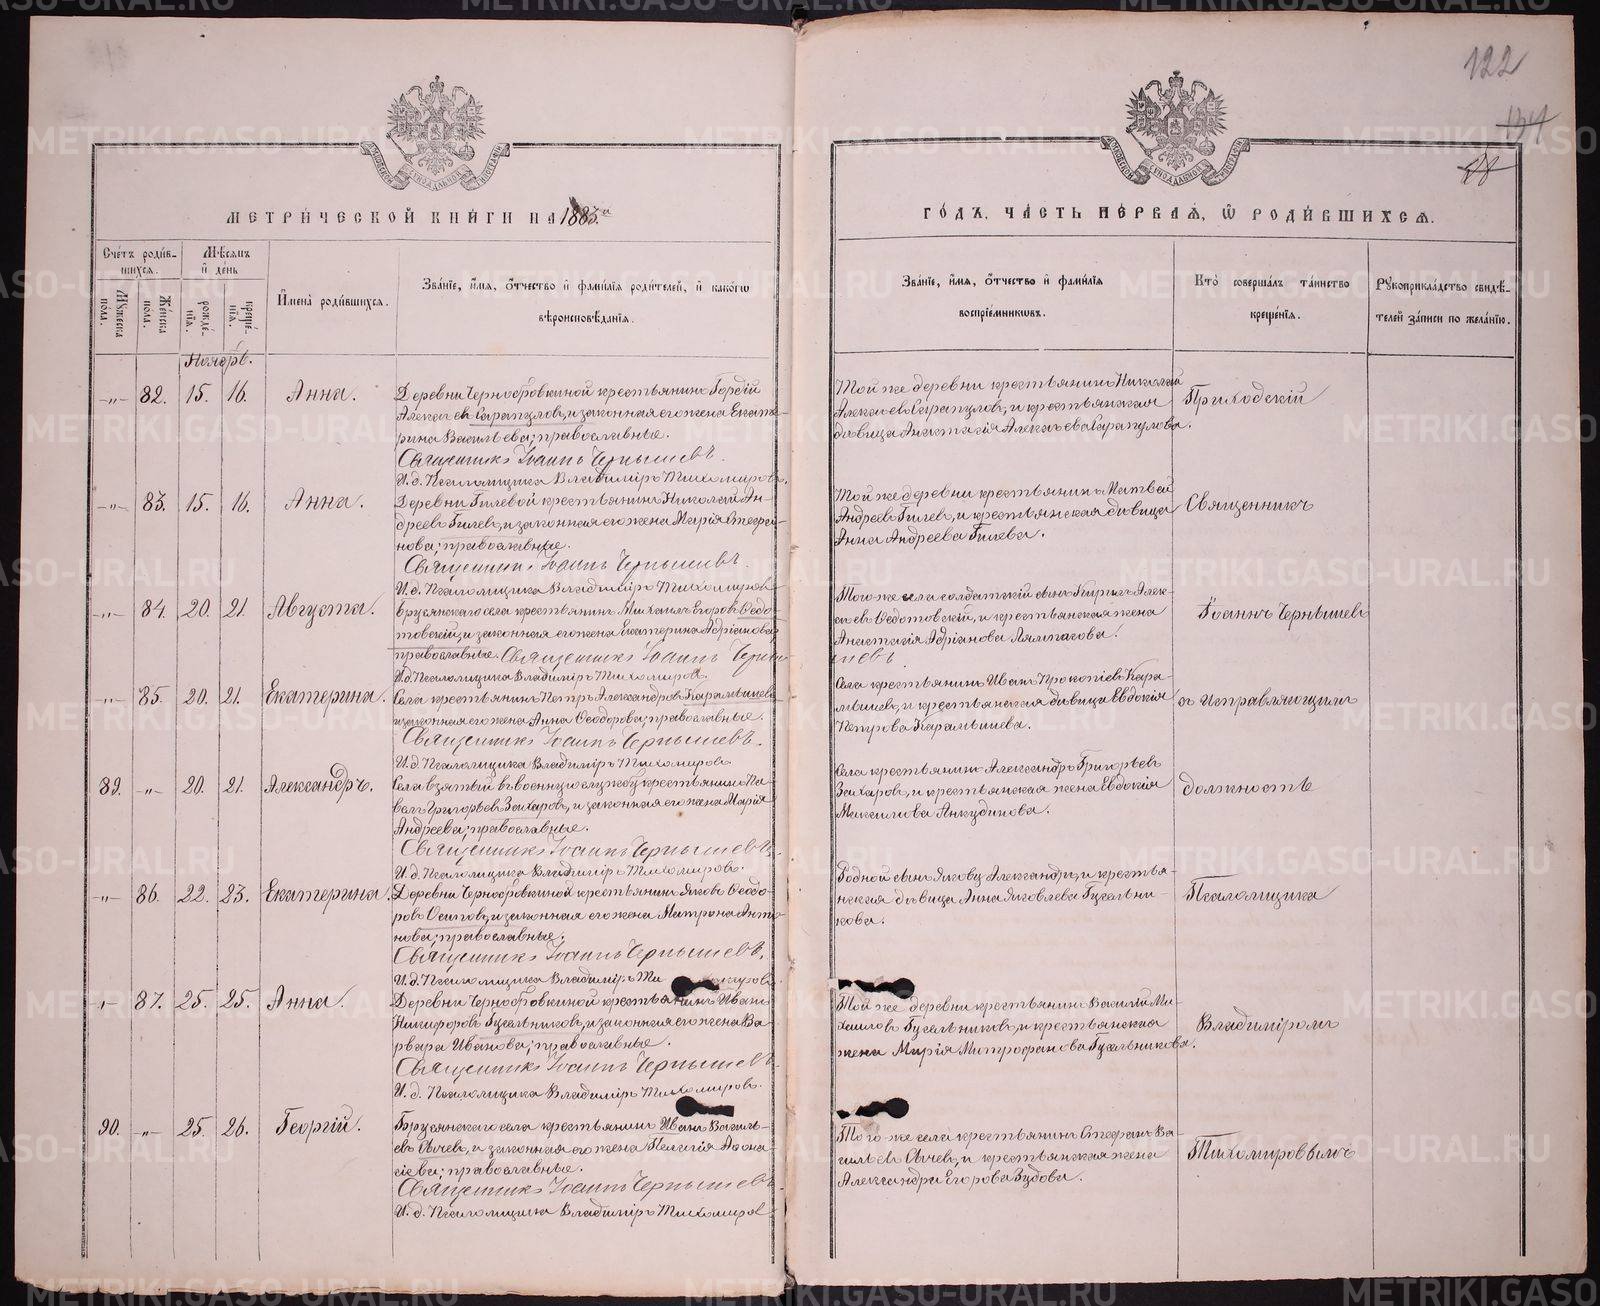 122
134
28
МОСКОВСКОЙ СѴНОДАЛЬНОЙ ТИПОГРАФІИ
МОСКОВСКОЙ СѴНОДАЛЬНОЙ ТИПОГРАФІИ
МЕТРИЧЕСКОЙ КНИГИ НА 1883й
ГОДЪ, ЧАСТЬ ПЕРВАЯ, Ѡ РОДИВШИХСЯ.
Счетъ родив-
шихся.
Мѣсяцъ
и день
Мужеска пола.
Женска пола.
рожденія.
крещенія.
Имена родившихся.
Званіе, имя, отчество и фамилія родителей, и какогω
вѣроисповѣданія.
Званіе, имя, отчество и фамилія
воспріемникωвъ.
Кто совершалъ таинство
крещенія.
Рукоприкладство свидѣ-
телей записи по желанію.
Ноябрь.
-„- 82. 15. 16. Анна.
Деревни Чернобровкиной крестьянинъ Гордій
Алексѣевъ Сарапуловъ, и законная его жена Екате-
рина Васильева; православные.
Священникъ Іоаннъ Чернышевъ.
И. д. Псаломщика Владиміръ Тихомировъ.
Той же деревни крестьянинъ Николай
Алексѣевъ Сарапуловъ, и крестьянская
дѣвица Анастасія Алексѣева Сарапулова.
Приходскій
-„- 83. 15. 16. Анна.
Деревни Гилевой крестьянинъ Николай Ан-
дреевъ Гилевъ, и законная его жена Марія Стефа-
нова; православные.
Священникъ Іоаннъ Чернышевъ.
И. д. Псаломщика Владиміръ Тихомировъ
Той же деревни крестьянинъ Матвей
Андреевъ Гилевъ, и крестьянская дѣвица
Анна Андреева Гилева.
Священникъ
-„- 84. 20. 21. Августа.
Брусянскаго села крестьянинъ Михаилъ Егоровъ Ѳедо-
товскій, и законная его жена Екатерина Адріанова;
православные. Священникъ Іоаннъ Черны-
шевъ
И. д. Псаломщика Владиміръ Тихомировъ.
Того же села солдатскій сынъ Кирилъ Алек-
сѣевъ Ѳедотовскій, и крестьянская жена
Анастасія Адріанова Лямпасова.
Іоаннъ Чернышевъ
-„- 85. 20. 21. Екатерина.
Села крестьянинъ Петръ Александровъ Карамышевъ
и законная его жена Анна Ѳеодорова; православные.
Священникъ Іоаннъ Чернышевъ.
И. д. Псаломщика Владиміръ Тихомировъ
Села крестьянинъ Иванъ Прокопіевъ Кара-
мышевъ, и крестьянская дѣвица Евдокія
Петрова Карамышева.
съ исправляющимъ
89. -„- 20. 21. Александръ.
Села взятый въ военную службу крестьянинъ Па-
велъ Григорьевъ Захаровъ, и законная его жена Марія
Андреева; православные.
Священникъ Іоаннъ Чернышевъ.
И. д. Псаломщика Владиміръ Тихомировъ.
Села крестьянинъ Александръ Григорьевъ
Захаровъ, и крестьянская жена Евдокія
Михаилова Анкудинова.
должность
-„- 86. 22. 23. Екатерина.
Деревни Чернобровкиной крестьянинъ Яковъ Ѳеодо-
ровъ Осиповъ, и законная его жена Матрона Анто-
нова; православные.
Священникъ Іоаннъ Чернышевъ.
И. д. Псаломщика Владиміръ Тихомировъ
Родной сынъ Яковъ Александръ, и крестья-
нская дѣвица Анна Яковлева Гусельни-
кова.
Псаломщика
-„- 87. 25. 25. Анна.
Деревни Чернобровкиной крестьянинъ Иванъ
Никифоровъ Гусельниковъ, и законная его жена Ва-
рвара Иванова; православные.
Священникъ Іоаннъ Чернышевъ
И. д. Псаломщика Владиміръ Тихомировъ.
Той же деревни крестьянинъ Василій Ми-
хаиловъ Гусельниковъ, и крестьянская
жена Марія Митрофанова Гусельникова.
Владиміромъ
90. -„- 25. 26. Георгій.
Брусянскаго села крестьянинъ Иванъ Василь-
евъ Сычевъ, и законная его жена Пелагія Аѳана-
сіева; православные.
Священникъ Іоаннъ Чернышевъ
И. д. Псаломщика Владиміръ Тихомировъ
Того же села крестьянинъ Стефанъ Ва-
сильевъ Сычевъ, и крестьянская жена
Александра Егорова Зудова.
Тихомировымъ
METRIKI.GASO-URAL.RU